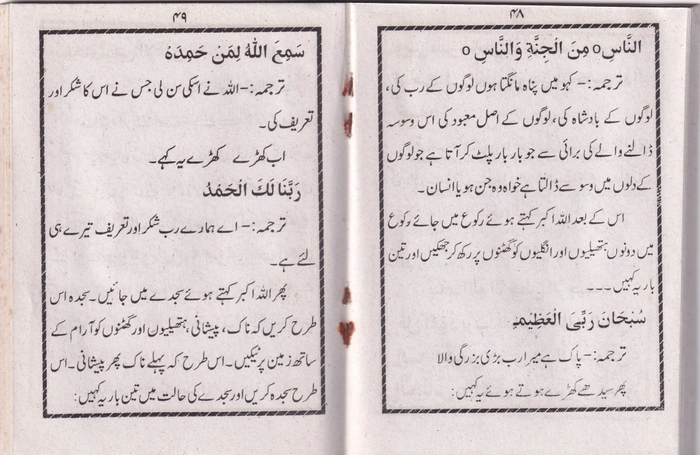 ۴۸
النَّاسِ ٥ مِنَ الْجِنَّةِ وَالنَّاسِ ٥
ترجمہ:- کہو میں پناہ مانگتا ہوں لوگوں کے رب کی،
لوگوں کے بادشاہ کی، لوگوں کے اصل معبود کی اس وسوسہ
ڈالنے والے کی برائی سے جو بار بار پلٹ کر آتا ہے جو لوگوں
کے دلوں میں وسوسے ڈالتا ہے خواہ وہ جن ہو یا انسان۔
اس کے بعد اللہ اکبر کہتے ہوئے رکوع میں جائے رکوع
میں دونوں ہتھیلیوں اور انگلیوں کو گھٹنوں پر رکھ کر جھکیں اور تین
بار یہ کہیں۔۔۔
سُبْحَانَ رَبِّیَ الْعَظِیْمِ
ترجمہ:- پاک ہے میرا رب بڑی بزرگی والا
پھر سیدھے کھڑے ہوتے ہوئے یہ کہیں:
۴۹
سَمِعَ اللّٰهُ لِمَنْ حَمِدَهٗ
ترجمہ:- اللہ نے اسکی سن لی جس نے اس کا شکر اور
تعریف کی۔
اب کھڑے کھڑے یہ کہے۔
رَبَّنَا لَكَ الْحَمْدُ
ترجمہ:- اے ہمارے رب شکر اور تعریف تیرے ہی
لئے ہے۔
پھر اللہ اکبر کہتے ہوئے سجدے میں جائیں۔ سجدہ اس
طرح کریں کہ ناک، پیشانی، ہتھیلیوں اور گھٹنوں کو آرام کے
ساتھ زمین پر ٹیکیں۔ اس طرح کہ پہلے ناک پھر پیشانی۔ اس
طرح سجدہ کریں اور سجدے کی حالت میں تین بار یہ کہیں: